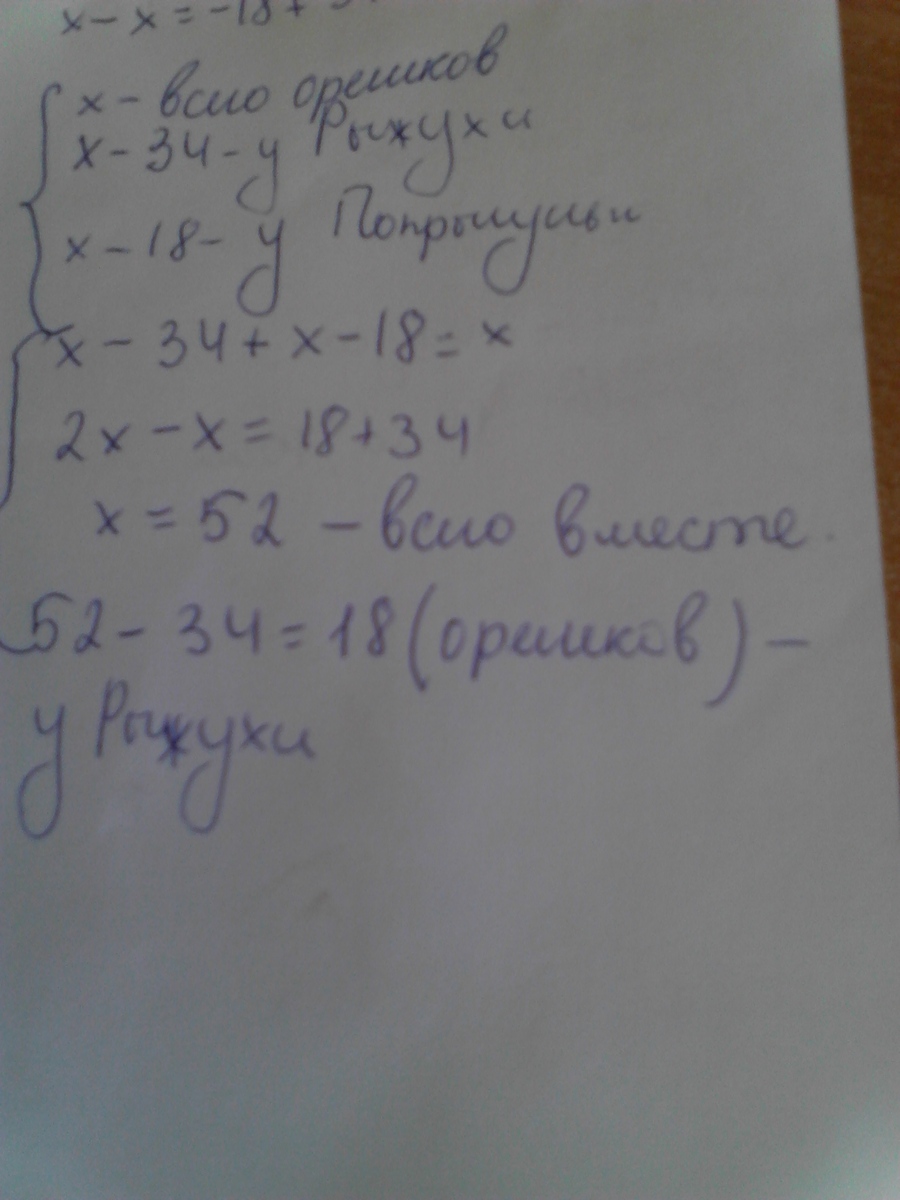 x - x = -18 +
x - всего орешков
x - 34 - у Рыжухи
x - 18 - у Попрыгуньи
x - 34 + x - 18 = x
2x - x = 18 + 34
x = 52 - всего вместе.
52 - 34 = 18 (орешков) -
у Рыжухи